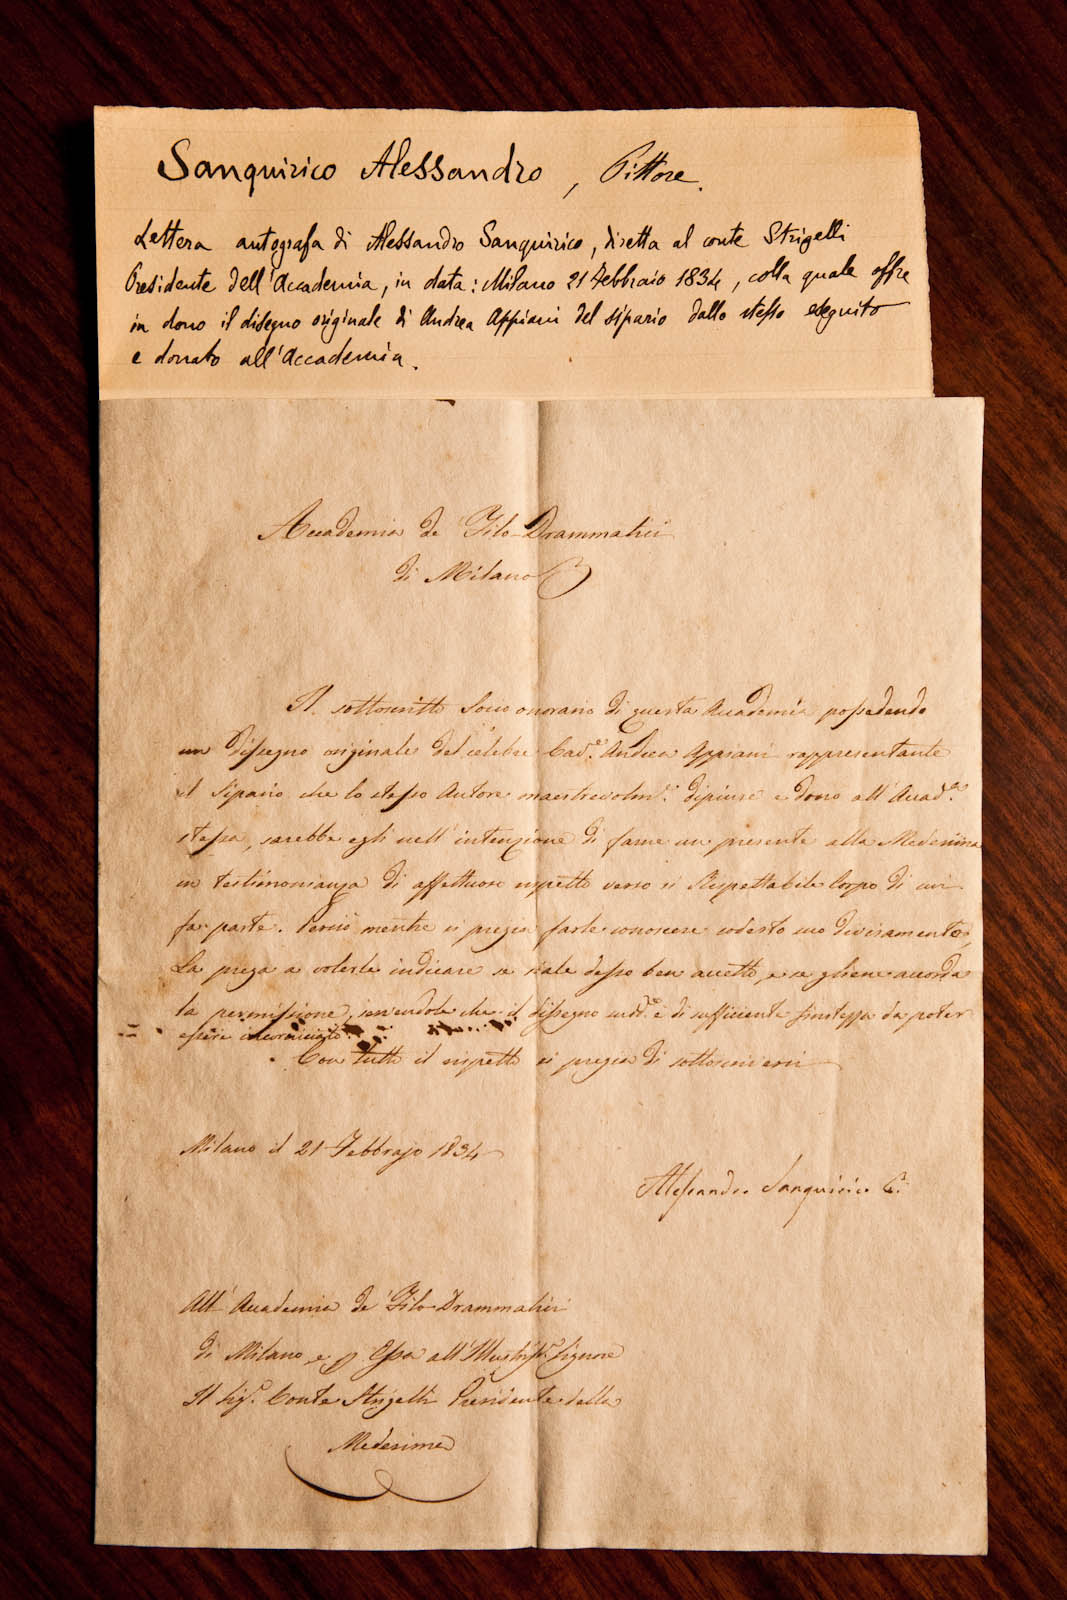 Sanquirico Alessandro, Pittore.
Lettera autografa di Alessandro Sanquirico, diretta al conte Strigelli
Presidente dell'Accademia, in data: Milano 21 Febbraio 1834, colla quale offre
in dono il disegno originale di Andrea Appiani del sipario dallo stesso eseguito
e donato all'Accademia.
Accademia de' Filo-Drammatici
di Milano
Il sottoscritto Socio onorario di questa Accademia possedendo
un dissegno originale del celebre Cav.e Andrea Appiani rappresentante
il Sipario che lo stesso Autore maestrevolm.e dipinse e donò all'Accad.a
stessa, sarebbe egli nell'intenzione di farne un presente alla Medesima
in testimonianza di affettuoso rispetto verso il Rispettabile Corpo di cui
fa parte. Perciò mentre si pregia farle conoscere codesto suo divisamento,
La prega a volerle indicare se siale desso ben accetto, e se gliene accorda
la permissione, essendo che il dissegno sud.o è di sufficiente finitezza da poter
essere incorniciato.
Con tutto il rispetto si pregia di sottoscriversi
Milano il 21 Febbrajo 1834
Alessandro Sanquirico P.
All'Accademia de' Filo-Drammatici
di Milano e p Essa all'Illustriss. Signore
Il Sig.r Conte Strigelli Presidente della
Medesima